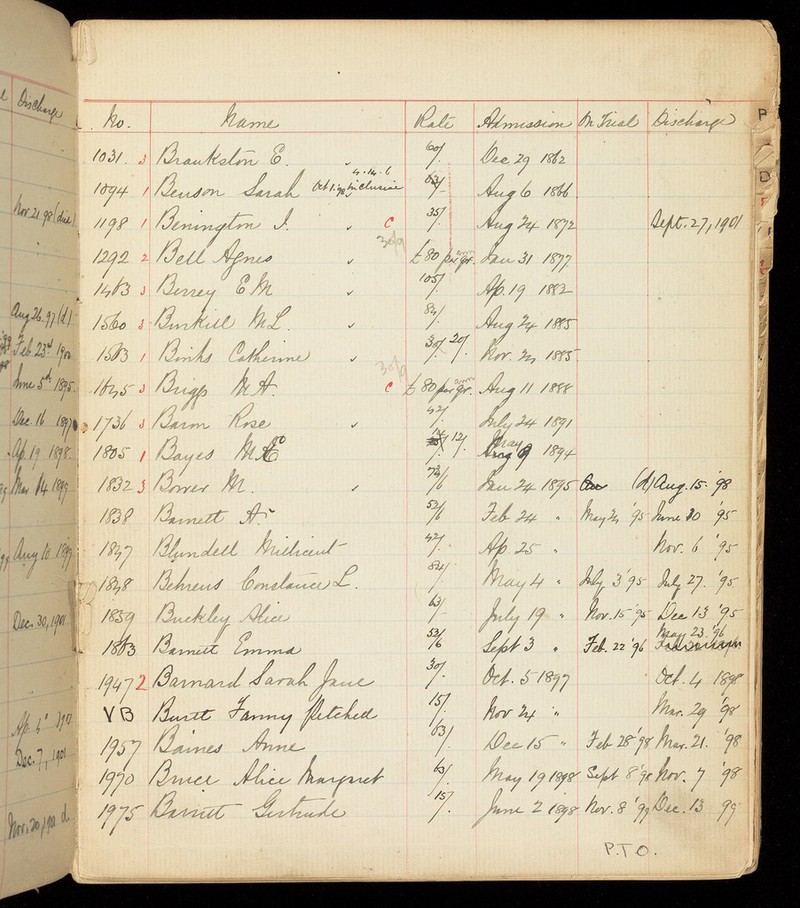 Discharge
Nov 21 98 (died)
Aug 26. 97 (d)
Feb 23rd 1900
June 5th 1895.
Dec. 16 1897
Ap. 19 1898
Mar 14 1899
Aug 10 1899
Dec. 30, 1901
Dec. 7, 1901
Nov. 20, 1901 d
No. Name Rate Admission On Trial Discharge
1031. 3 Braukston E. 60/. Dec 29 1862
4.14.6
1094 1 Benson Sarah Oct 1. 98 inclusive 63/. Aug 6 1866
1198 1 Benington I. C 35/. Aug 24 1872 Sept. 27, 1901
1292 2 Bell Agnes 30/9 £80 per ann. Jan 31 1877
1463 3 Berrey E M 105/. Ap. 19 1882
1560 3 Burkill M L. 84/. Aug 24 1885
1563 1 Binks Catherine 30/. 20/. Nov. 1885
1645 3 Briggs M A. 30/9 C £80 per ann. Aug 11 1888
1736 3 Baron Rose 42/. July 24 1891
1805 1 Bayes 12/. May 9 1894
1832 3 Bower M. 73/6 Jan 24 1895 (d) Aug. 15 '98
1838 Barnett A. 53/6 Feb 24 " May 24 '95 June 30 '95
1847 Blundell Millicent 42/. Ap 25 " Nov. 6 '95
1848 Behrens Constance L. 84/. May 4 " July 3 '95 July 27. '95
1859 Buckley Alice 63/. July 19 " Nov. 15 '95 Dec 13 '95
1863 Barnett Emma 53/6 Sept 3 " Feb. 22 '96 May 23 '96
1947 2 Barnard Sarah Jane 30/. Oct. 5 1897 Oct. 4 1898
VB Burtt Fanny Pitched 15/. Nov 24 " Mar. 29 '98
1957 Baines Anne 63/. Dec 15 " Feb 28 '98 Mar. 21. '98
1970 Bruce Alice Margaret 63/. May 19 1898 Sept 8 '98 Nov. 7 '98
1975 Barritt Gertrude 15/. June 2 1898 Nov. 8 '99 Dec. 13 99
P.T.O.